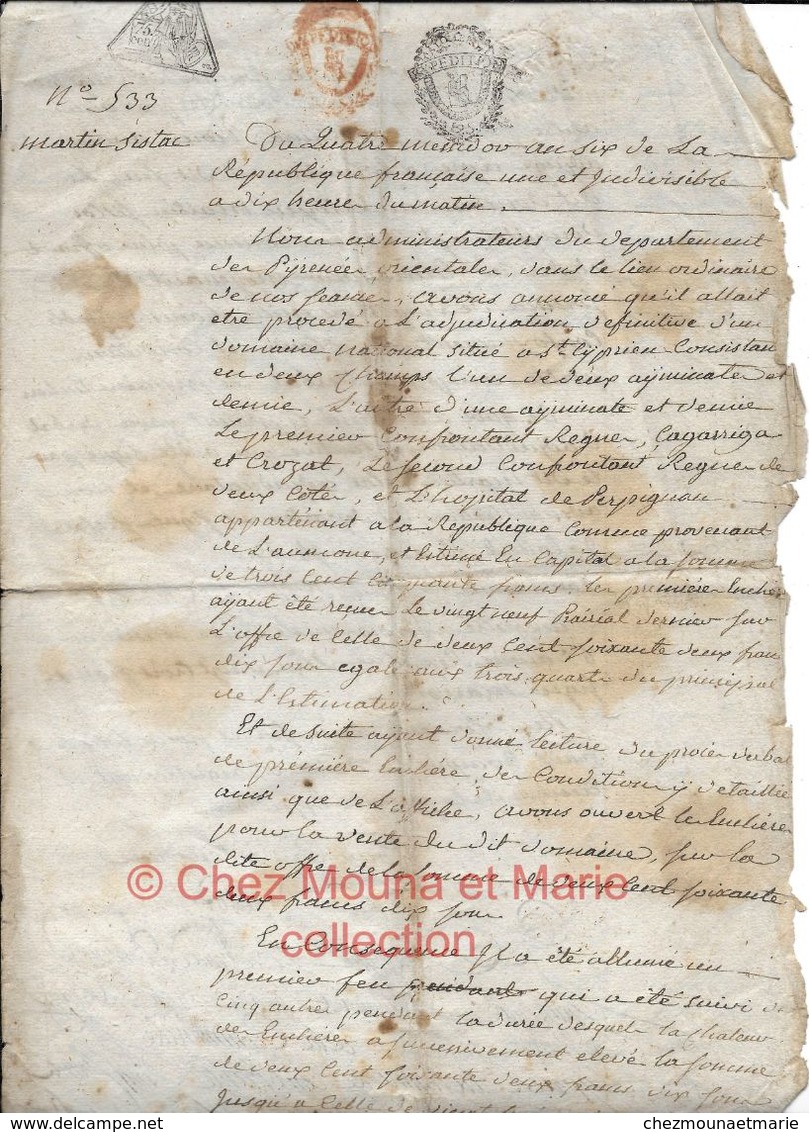 75 cent
EXPEDITION
EXPEDITION
N° 533
martin Sistac
Du Quatre messidor an six de La
République française une et Indivisible
a dix heures du matin.
Nous administrateurs du departement
des Pyrenées orientales, dans le lieu ordinaire
de nos seances, avons annoncé qu'il allait
etre procedé a L'adjudication definitive d'un
domaine national situé a St Cyprien Consistan
en deux champs l'un de deux ayminates et
demie, L'autre d'une ayminate et demie
Le premier Confrontant Regner, Cagarriga
et Crozat, Le second Confrontant Regner de
deux Cotés, et L'hopital de Perpignan
appartenant a la République Comme provenant
de L'aumone, et Estimé En Capital a la somme
de trois Cent Cinquante francs. les premières Enchères
ayant été reçues Le vingt neuf Prairial dernier sur
L'offre de Celle de deux Cent soixante deux fran
dix sous egale aux trois quarts du principal
de L'Estimation.
Et de suite ayant donné lecture du procès verbal
de première Enchère, des Conditions y detaillées
ainsi que de L'affiche, avons ouvert les Enchères
pour la vente du dit domaine, sur la
dite offre de la somme de deux Cent soixante
deux francs dix sous
© Chez Mouna et Marie
collection
En Consequence Il a été allumé un
premier feu pendant qui a été suivi de
Cinq autres pendant la durée desquels la chaleur
des Enchères a successivement elevé la somme
de deux Cent soixante deux francs dix sous
Jusqu'a Celle de
chezmounaetmarie